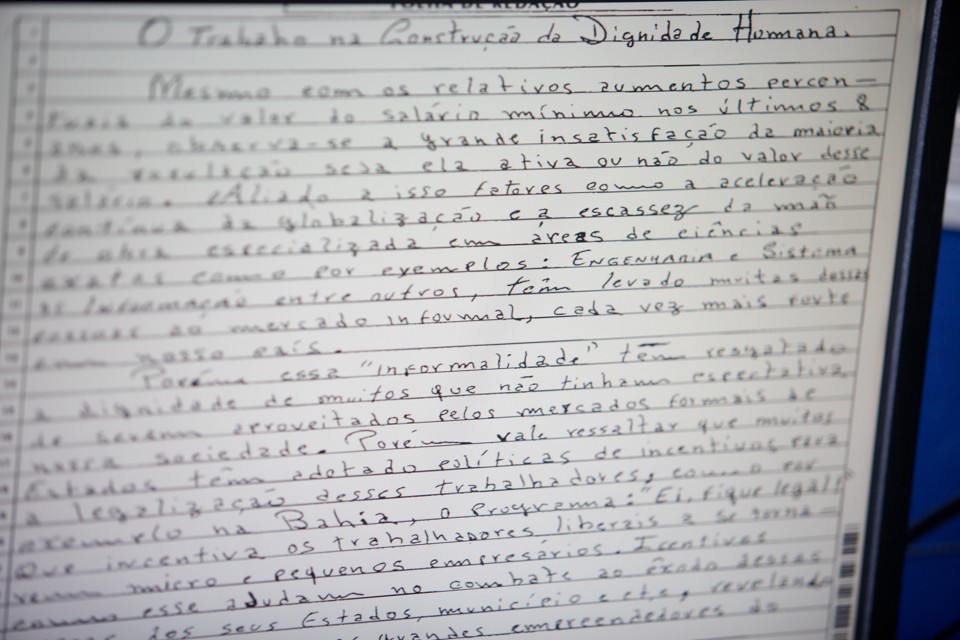 FOLHA DE REDAÇÃO
O Trabaho na Construção da Dignidade Humana.
Mesmo com os relativos aumentos percen-
tuais do valor do salário mínimo nos últimos 8
anos, observa-se a grande insatisfação da maioria
da população seja ela ativa ou não do valor desse
salário. Aliado a isso fatores como a aceleração
contínua da globalização e a escassez da mão
de obra especializada em áreas de ciências
exatas como por exemplos: ENGENHARIA e Sistema
as Informação entre outros, têm levado muitas dessas
pessoas ao mercado informal, cada vez mais forte
em nosso país.
Porém essa "informalidade" têm resgatado
a dignidade de muitos que não tinham espectativa
de serem aproveitados pelos mercados formais de
nossa sociedade. Porém vale ressaltar que muitos
Estados têm adotado políticas de incentivos para
a legalização desses trabalhadores, como por
exemplo na Bahia, o Programa: "Ei, fique legal!"
que incentiva os trabalhadores liberais a se torna-
rem micro e pequenos empresários. Icentivos
como esse ajudam no combate ao êxodo dessas
dos seus Estados, município e etc, revelando
grandes empreendedores do